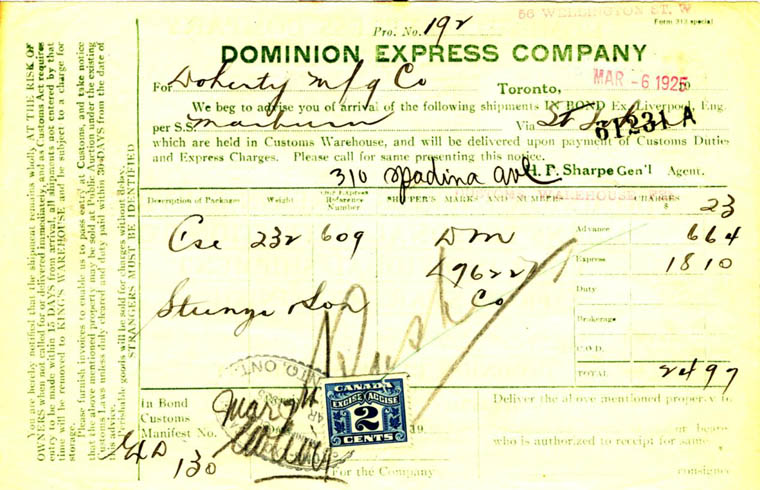 56 WELLINGTON ST. W
Form 313 special
Pro. No. 192
DOMINION EXPRESS COMPANY
For Doherty Mfg Co Toronto, MAR -6 1925
We beg to advise you of arrival of the following shipments IN BOND Ex. Liverpool, Eng.
per S.S. Marburn Via St. John
61231 A
which are held in Customs Warehouse, and will be delivered upon payment of Customs Duties
and Express Charges. Please call for same presenting this notice.
310 Spadina Ave H. P. Sharpe Gen'l Agent.
WAREHOUSE
Description of Packages Weight Our Express Reference Number SHIPPER'S MARKS AND NUMBERS CHARGES
$ 23
Cse 232 609 DM Advance 664
49622 Express 1810
Co Duty
Son
Rush
Brokerage
C.O.D.
TOTAL 2497
TO, ONT.
CANADA
EXCISE ACCISE
2
CENTS
In Bond
Customs
Manifest No.
130
Mar 9th
19
For the Company
Deliver the above mentioned property to
or bearer
who is authorized to receipt for same
consignee
You are hereby notified that the shipment remains wholly AT THE RISK OF
OWNERS when not called for or delivered immediately, and as Customs Act requires
entry to be made within 15 DAYS from arrival, all shipments not entered by that
time will be removed to KING'S WAREHOUSE and be subject to a charge for
storage.
Please furnish invoices to enable us to pass entry at Customs, and take notice
that the above mentioned property may be sold at Public Auction under the existing
Customs Laws unless duly cleared and duty paid within 30 DAYS from the date of
this advice.
Perishable goods will be sold for charges without delay.
STRANGERS MUST BE IDENTIFIED